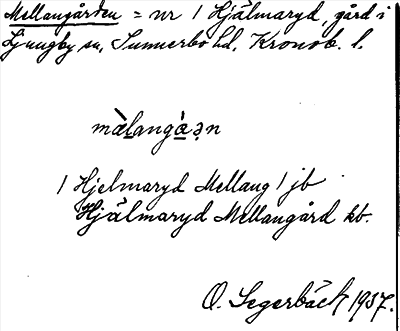 Mellangården = nr 1 Hjälmaryd, gård i
Ljungby sn, Sunnerbo hd, Kronob. l.
mæ̀langɑ́ən
1 Hjelmaryd Mellang 1 jb
Hjälmaryd Mellangård kb.
O. Segerbäck 1937.